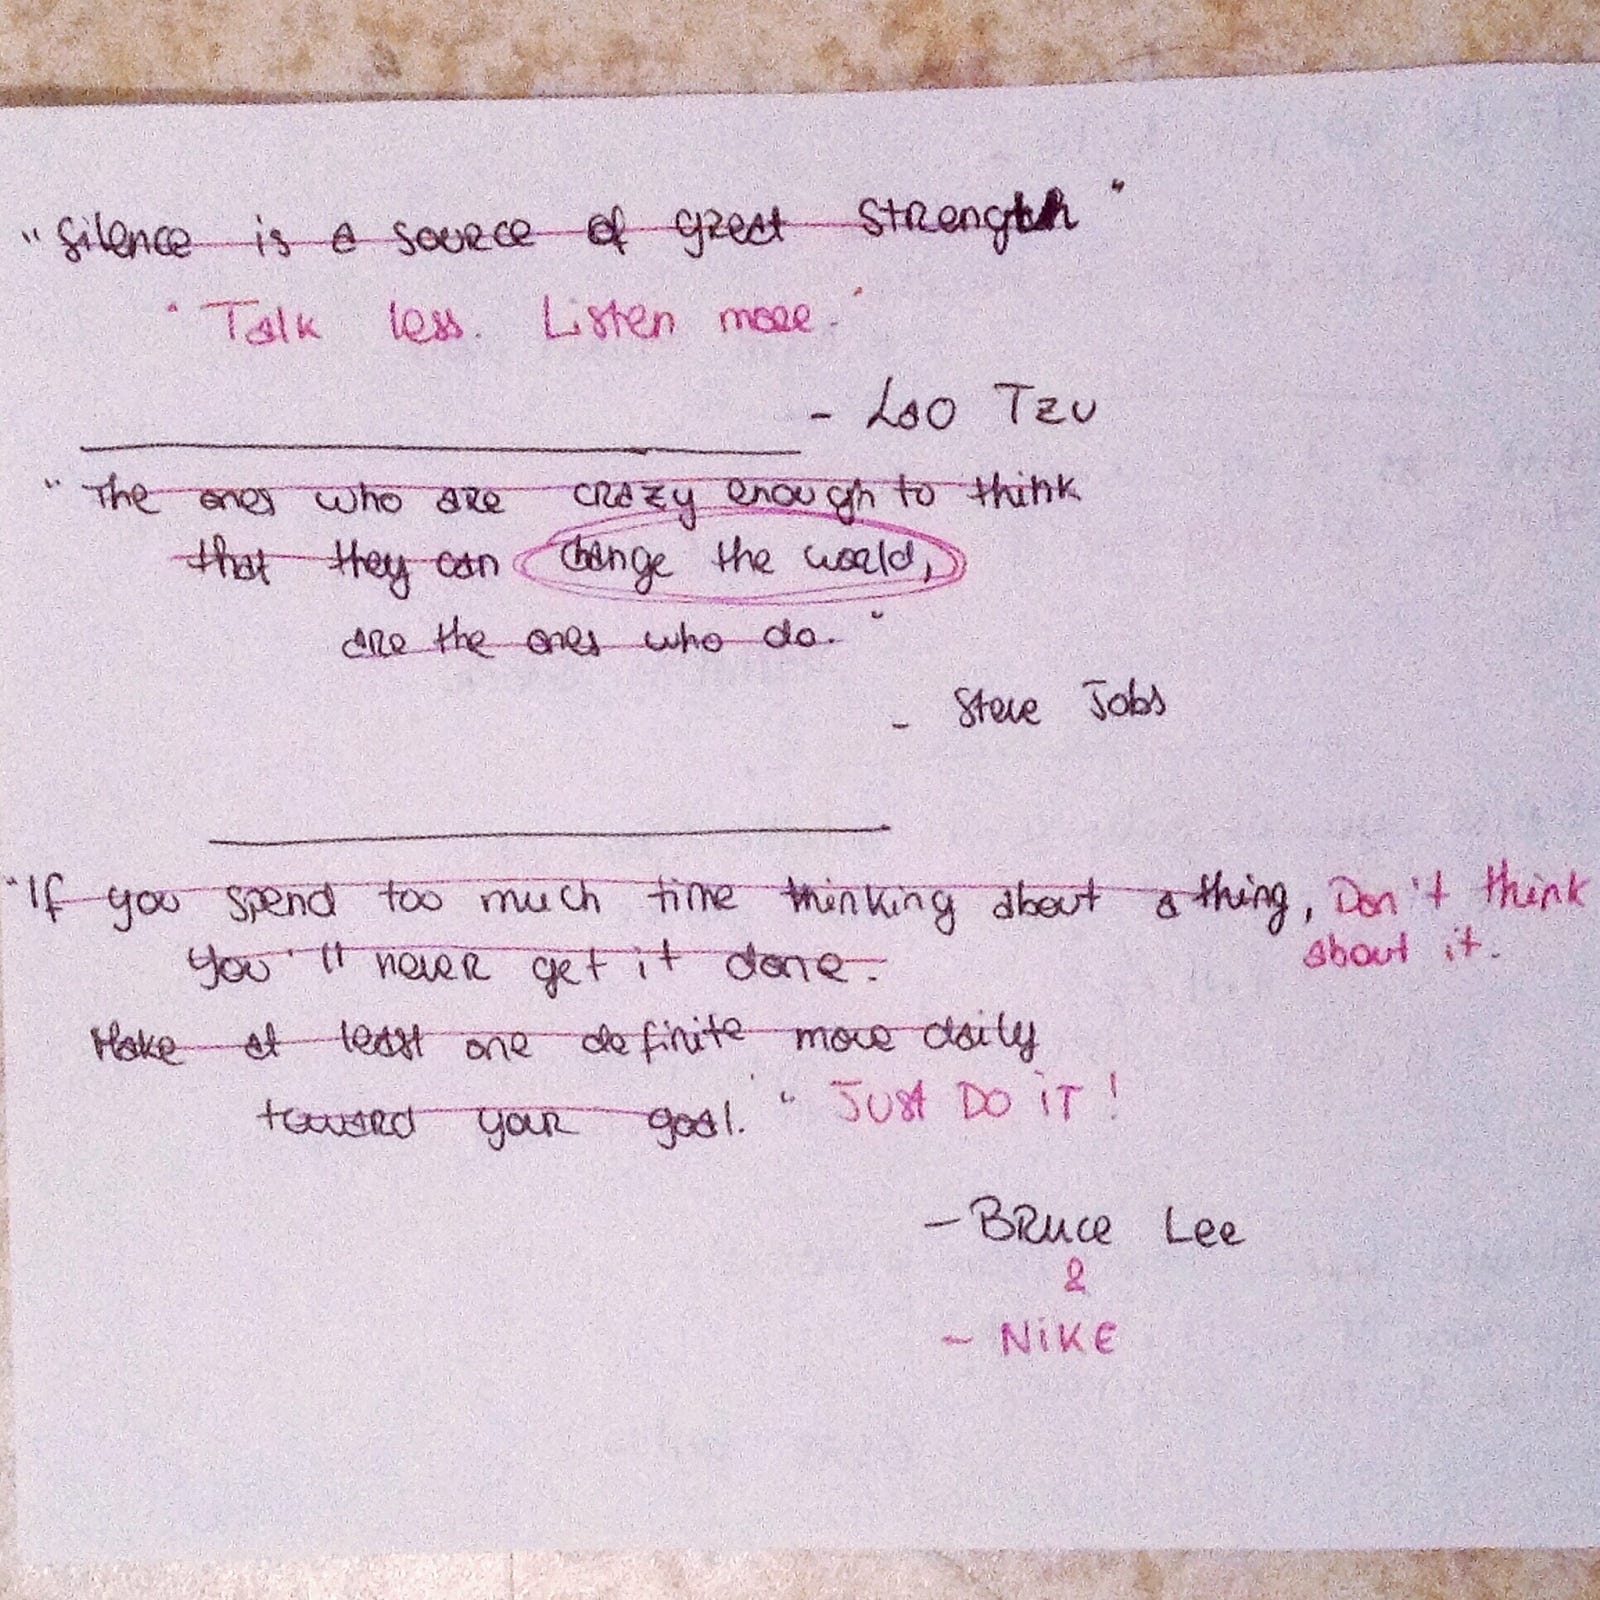 "Silence is a source of great Strength"
"Talk less. Listen more."
- Lao Tzu
"The ones who are crazy enough to think
that they can change the world,
are the ones who do."
- Steve Jobs
"If you spend too much time thinking about a thing, Don't think
you'll never get it done. about it.
Make at least one definite move daily
toward your goal." JUst DO iT!
- BRuce Lee
&
- NiKE